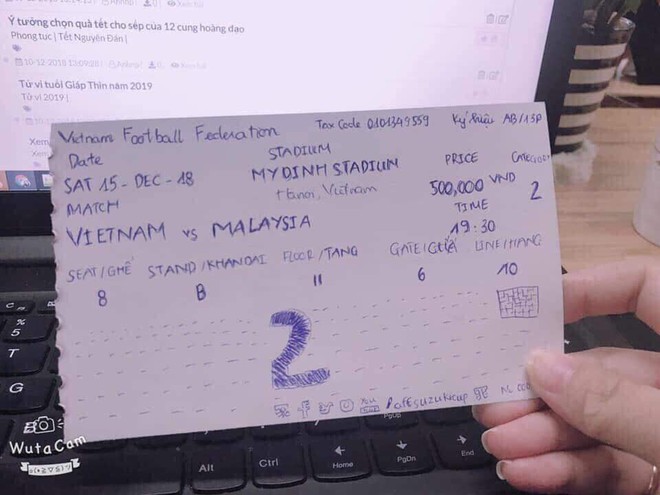 Ý tưởng chọn quà tết cho sếp của 12 cung hoàng đạo
Phong tục | Tết Nguyên Đán |
10-12-2018
Tử vi tuổi Giáp Thìn năm 2019
Tử vi 2019 |
Xem
Xem
Vietnam Football Federation Tax Code 0101349559 Ký hiệu AB/15P
Date STADIUM PRICE CATEGORY
SAT 15-DEC-18 MY DINH STADIUM 500,000 VND 2
Hanoi, Vietnam
MATCH TIME
VIETNAM vs MALAYSIA 19:30
SEAT/GHẾ STAND/KHAN ĐAI FLOOR/TANG GATE/CỬA LINE/HANG
8 B II 6 10
2
@affsuzukicup No 000
C %
5
T
G
Alt Ctrl Home PgDn End
PgDn
WutaCam